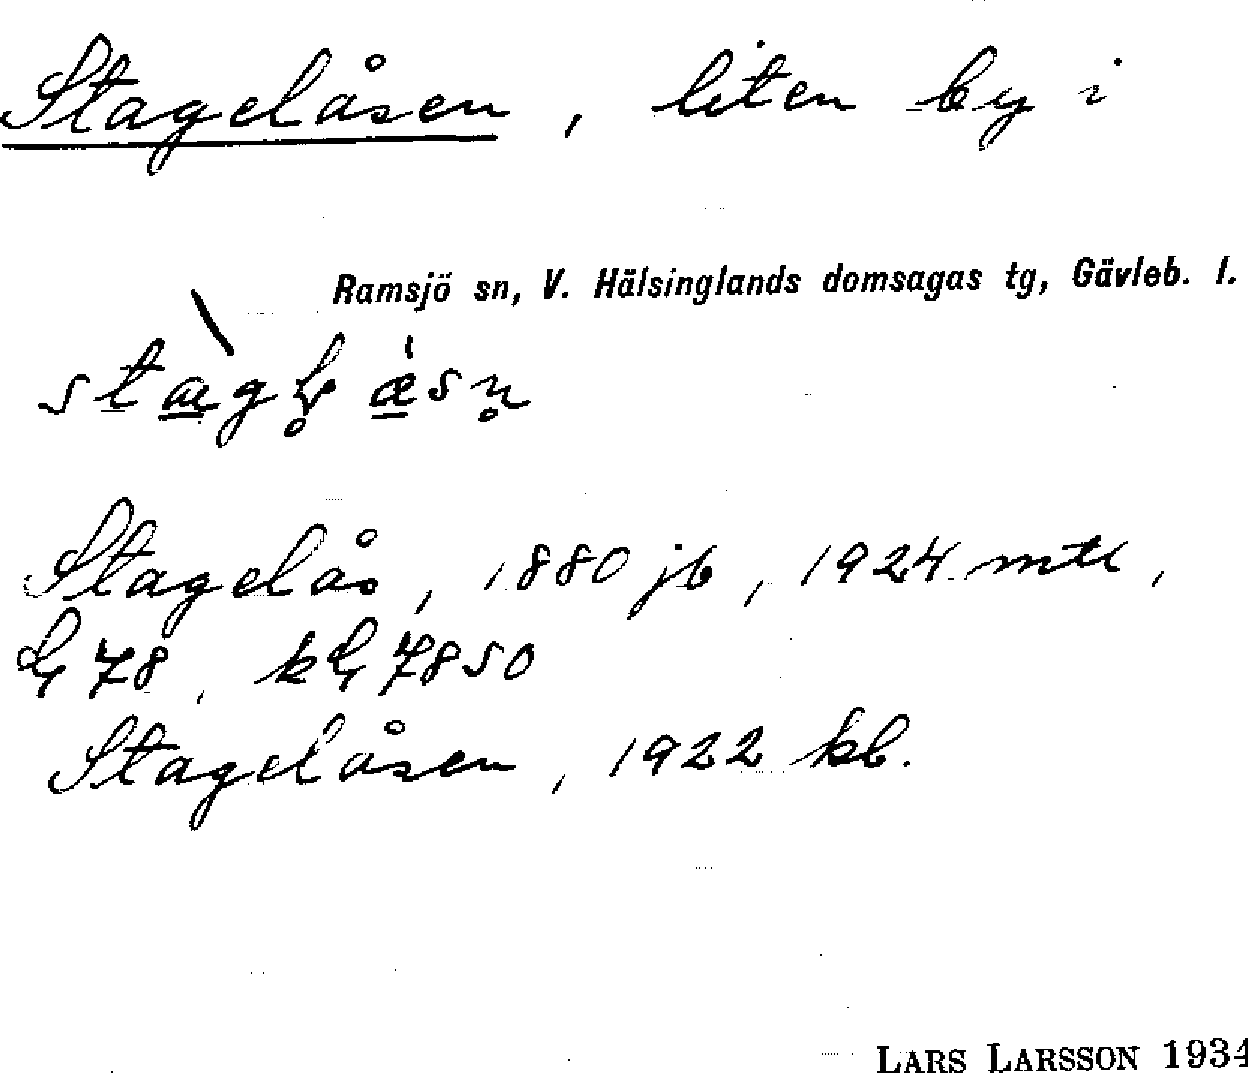 Stagelåsen, liten by i
Ramsjö sn, V. Hälsinglands domsagas tg, Gävleb. l.
Stagelås, 1880 jb, 1924 mtl,
78, 7850
Stagelåsen, 1922 kb.
LARS LARSSON 1934